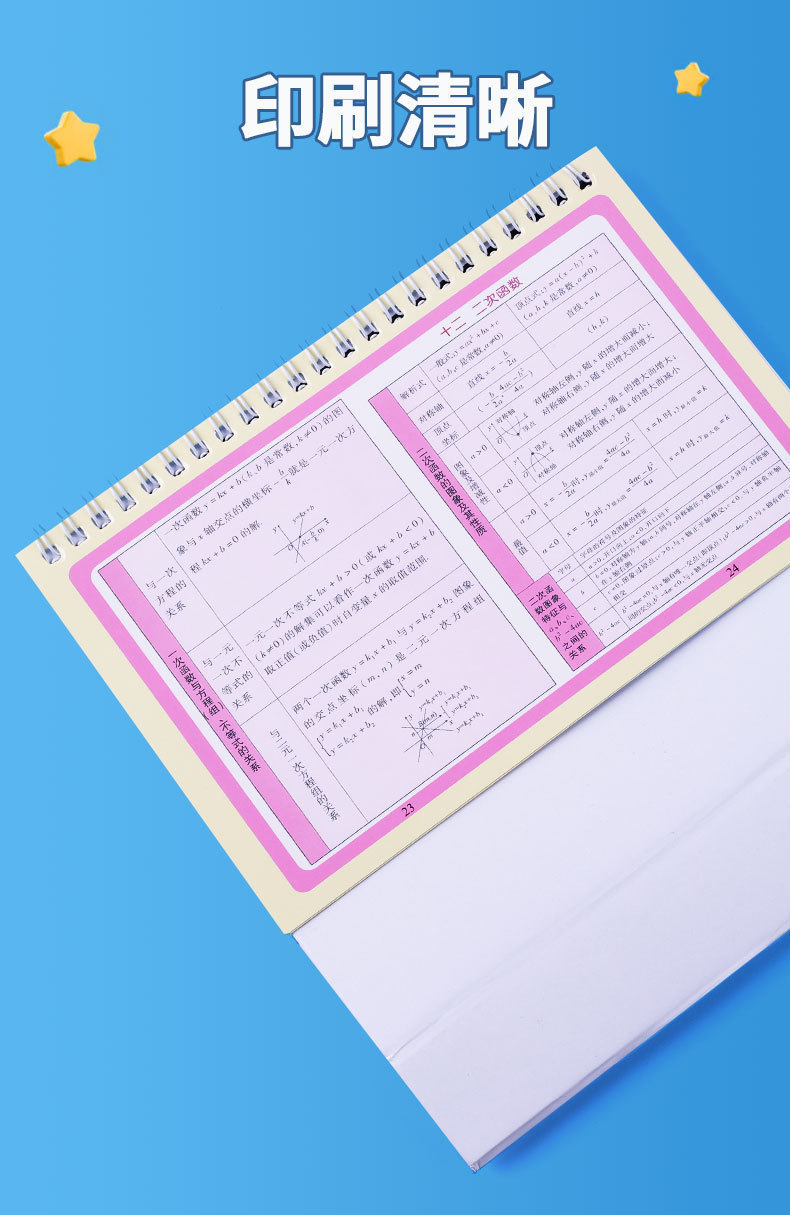 印刷清晰
一次函数与方程(组)、不等式的关系
与一次方程的关系
一次函数 y=kx+b(k,b 是常数,k≠0)的图
象与 x 轴交点的横坐标 -b/k 就是一元一次方
程 kx+b=0 的解.
y
y=kx+b
O
x
与一元一次不等式的关系
一元一次不等式 kx+b>0(或 kx+b<0)
(k≠0)的解集可以看作一次函数 y=kx+b
取正值(或负值)时自变量 x 的取值范围.
与二元一次方程组的关系
两个一次函数 y=k₁x+b₁与 y=k₂x+b₂ 图象
的交点坐标(m,n)是二元一次方程组
{y=k₁x+b₁ 的解,即{x=m
{y=k₂x+b₂ {y=n
23
十二 二次函数
二次函数的图象及其性质
解析式
一般式:y=ax²+bx+c
(a,b,c 是常数,a≠0)
顶点式:y=a(x-h)²+k
(a,h,k 是常数,a≠0)
对称轴
直线 x=-b/2a
直线 x=h
顶点坐标
(-b/2a, (4ac-b²)/4a)
(h,k)
图象及增减性
a>0
对称轴
顶点
对称轴左侧,y 随 x 的增大而减小;
对称轴右侧,y 随 x 的增大而增大
a<0
顶点
对称轴
对称轴左侧,y 随 x 的增大而增大;
对称轴右侧,y 随 x 的增大而减小
最值
a>0
x=-b/2a 时,y最小值=(4ac-b²)/4a
x=h 时,y最小值=k
a<0
x=-b/2a 时,y最大值=(4ac-b²)/4a
x=h 时,y最大值=k
二次函数图象特征与 a,b,c, b²-4ac 之间的关系
字母
字母的符号及图象的特征
a
a>0,开口向上;a<0,开口向下
b
c
b²-4ac
24